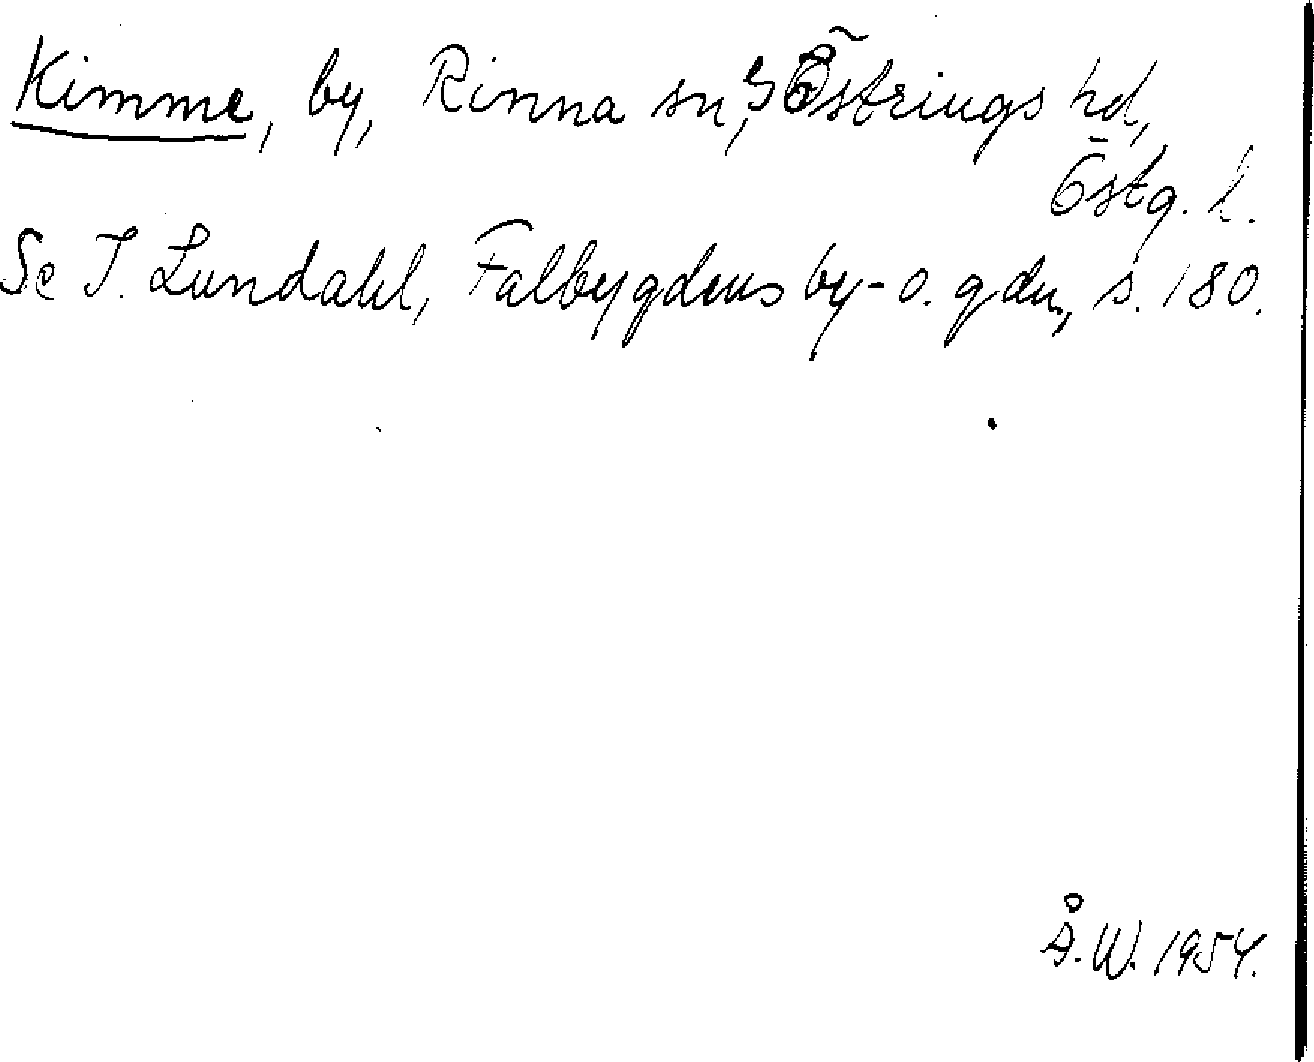 Kimme, by, Rinna sn, Göstrings hd,
Östg. l.
Se I. Lundahl, Falbygdens by- o. gdn, s. 180.
Å.W. 1954.